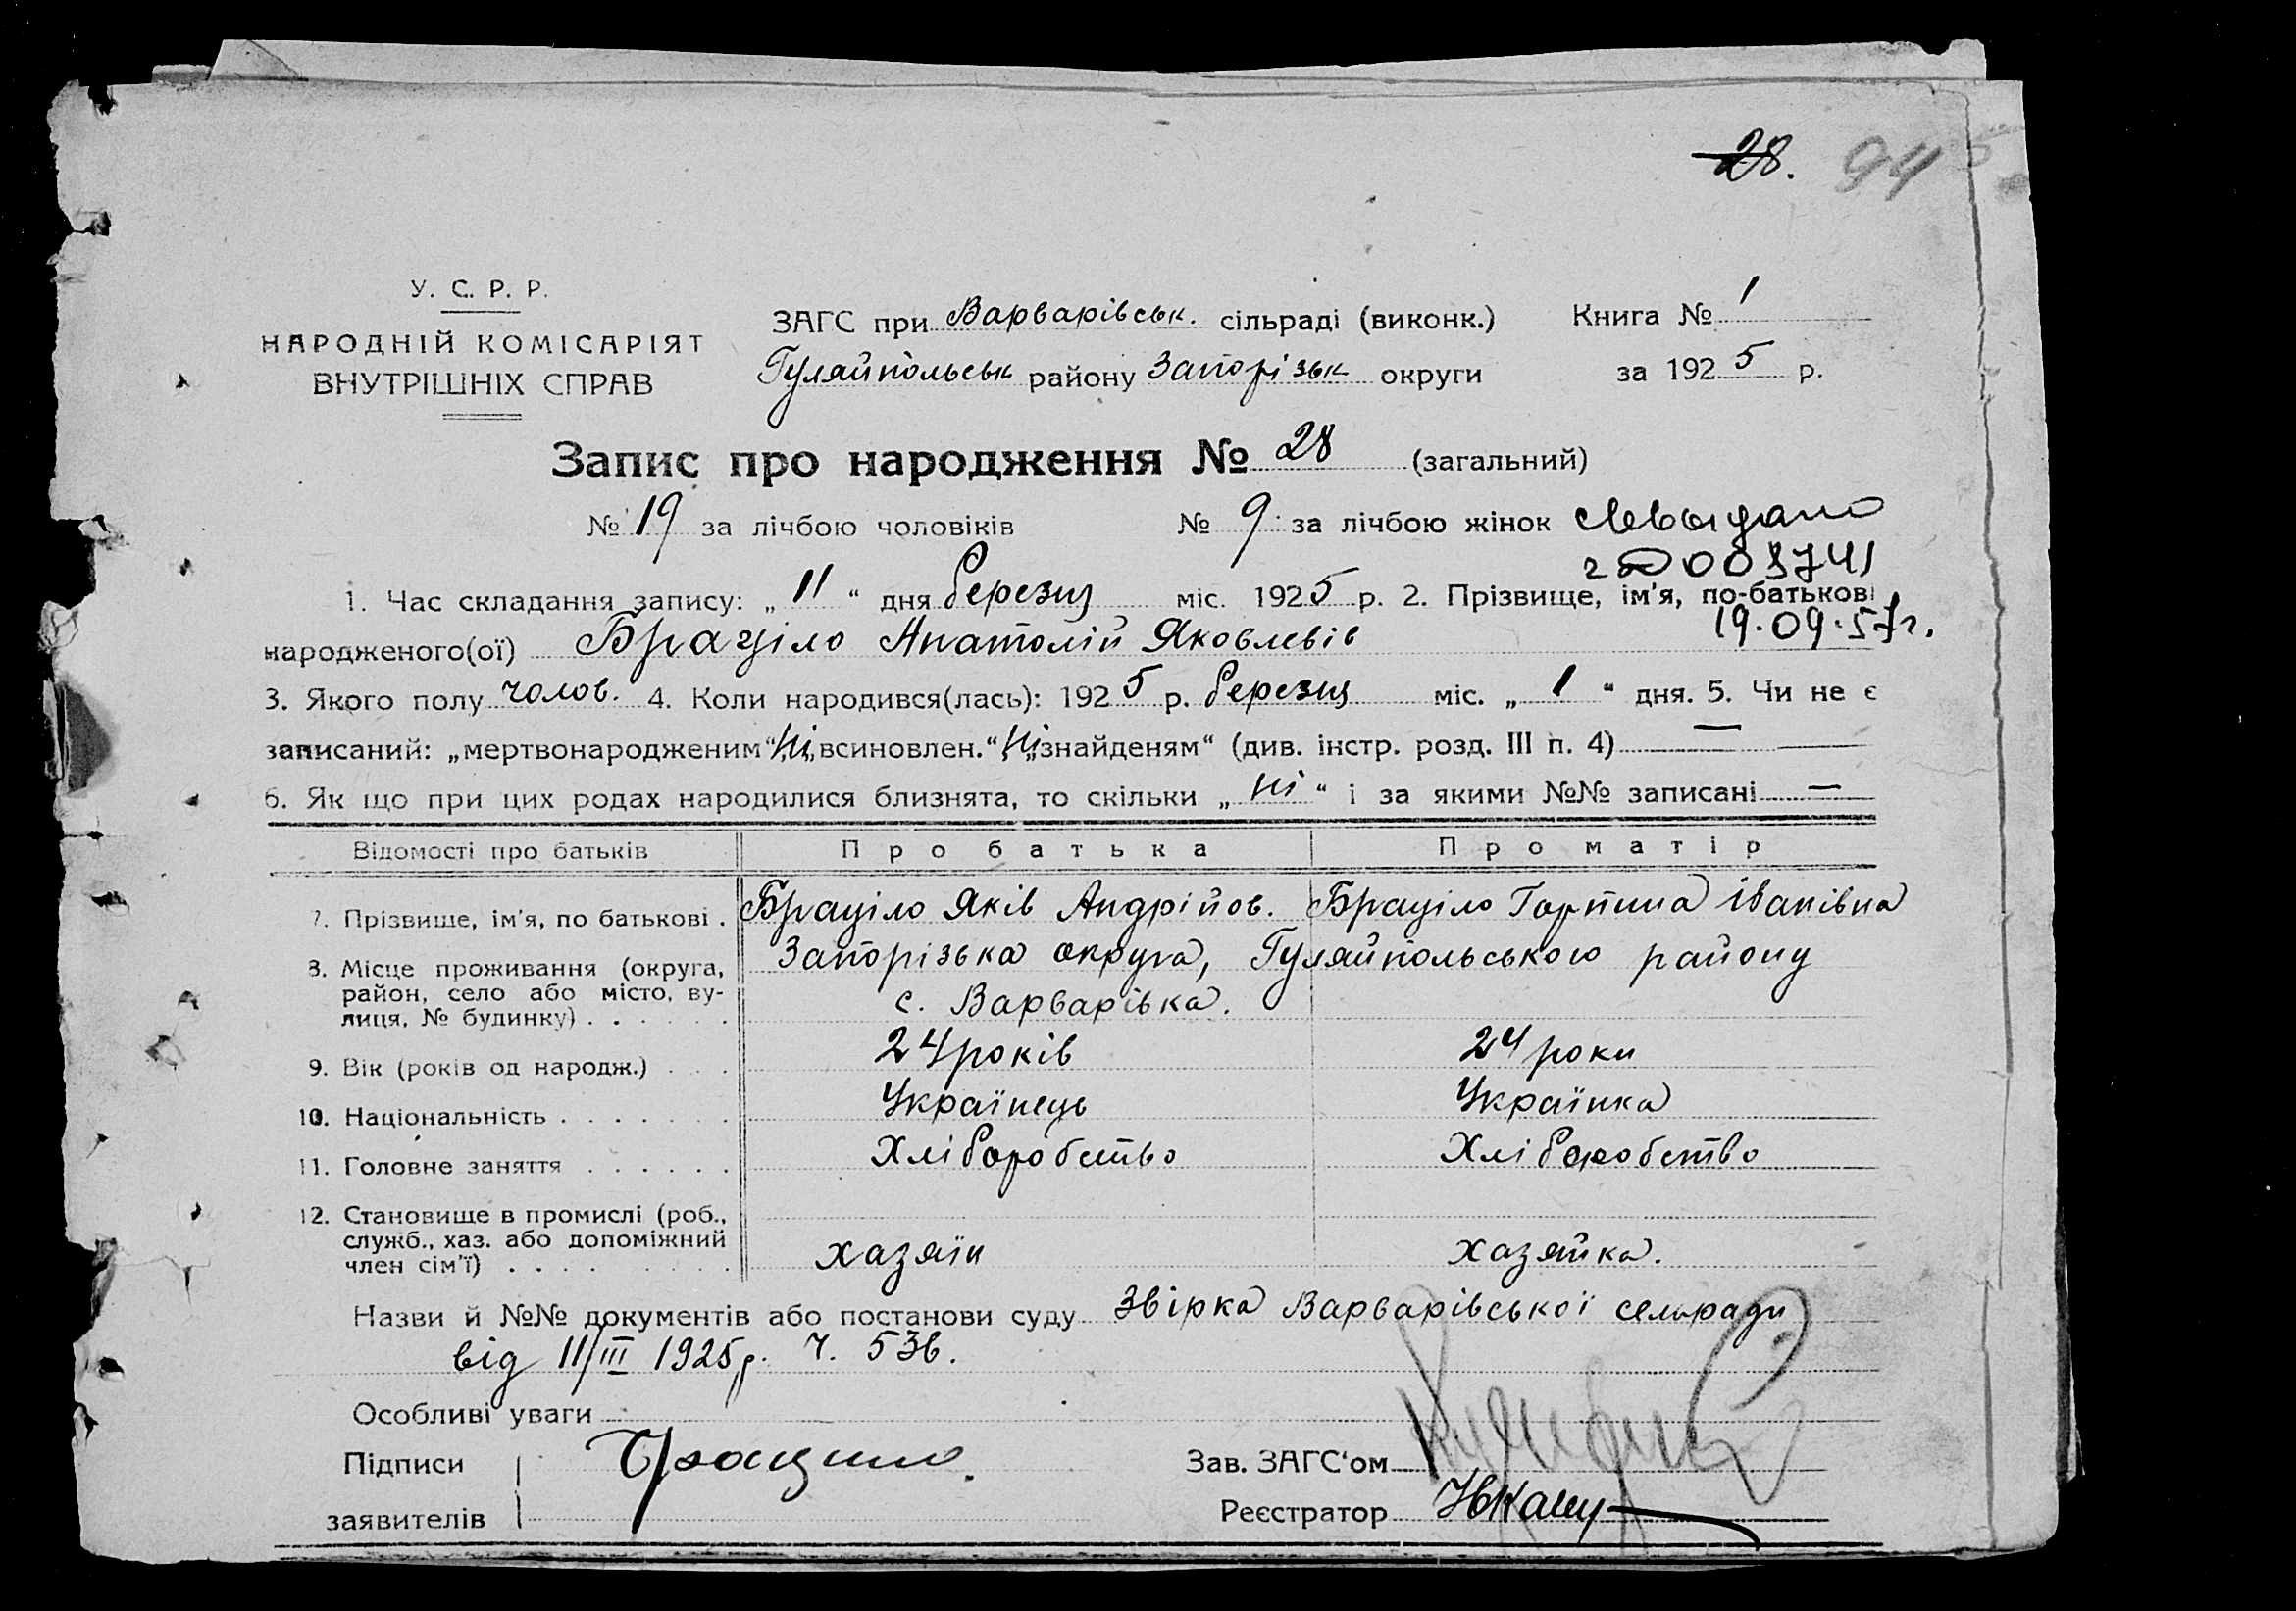 28. 94
У. С. Р. Р.
НАРОДНІЙ КОМІСАРІЯТ
ВНУТРІШНІХ СПРАВ
ЗАГС при Варварівськ. сільраді (виконк.) Книга № 1
Гуляйпольськ району Запорізьк округи за 1925 р.
Запис про народження № 28 (загальний)
№ 19 за лічбою чоловіків № 9 за лічбою жінок
003741
1. Час складання запису: „11“ дня березня міс. 1925 р. 2. Прізвище, ім'я, по-батькові
19.09.57г.
народженого(ої) Браціло Анатолій Яковлевів
3. Якого полу чолов. 4. Коли народився(лась): 1925 р. березня міс. „1“ дня. 5. Чи не є
записаний: „мертвонародженим“ ні „всиновлен.“ ні „знайденям“ (див. інстр. розд. III п. 4) —
6. Як що при цих родах народилися близнята, то скільки „ні“ і за якими №№ записані —
Відомості про батьків Про батька Про матір
7. Прізвище, ім'я, по батькові . Браціло Яків Андрійов. Браціло Горпина Іванівна
8. Місце проживання (округа, район, село або місто, ву-лиця, № будинку) . . . . . . Запорізька округа, Гуляйпольського району
с. Варварівка.
9. Вік (років од народж.) . . . 24 років 24 роки
10. Національність . . . . . . . Українець Українка
11. Головне заняття . . . . . . Хліборобство Хліборобство
12. Становище в промислі (роб., служб., хаз. або допоміжний член сім'ї) . . . . хазяїн хазяйка.
Назви й №№ документів або постанови суду Звірка Варварівської сельради
від 11/III 1925 р. Ч. 536.
Особливі уваги
Підписи Зав. ЗАГС‘ом
заявителів Реєстратор